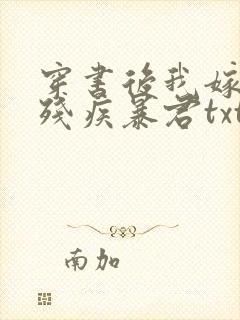 穿书后我嫁
残疾暴君txt
南加